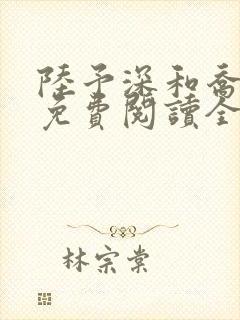 陸予深和喬
免費閱讀全
林宗棠